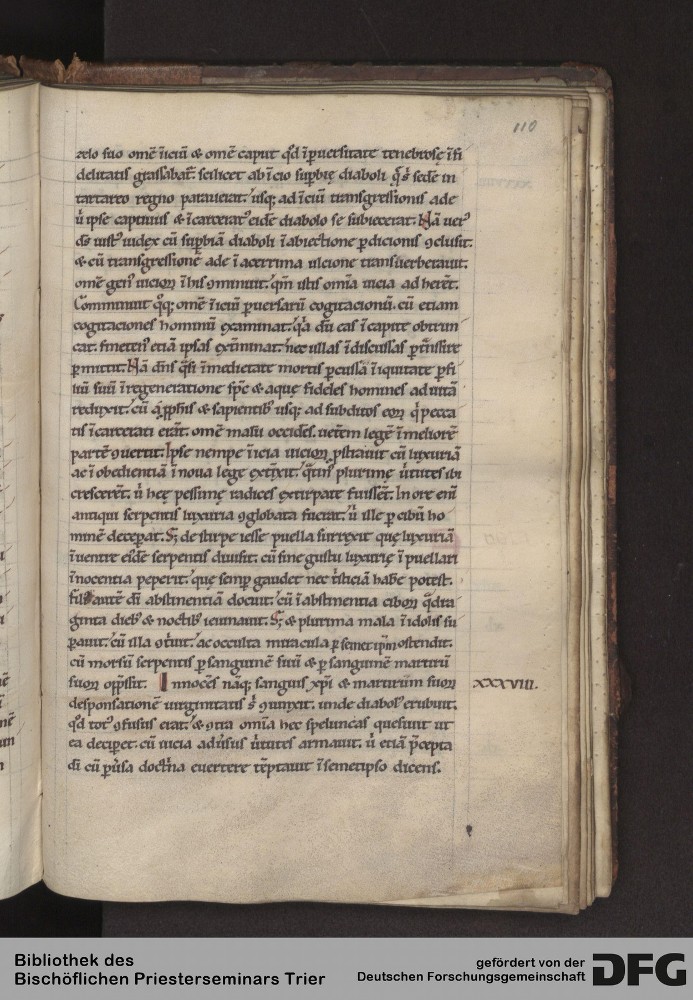 110
zelo suo omē iniciū & omē caput qd̄ ī puersitate tenebrosę īfi
delitatis grassabat᷑. scilicet ab inicio supbię diaboli qͥ sibi sedē in
tartareo regno parauerat. usq; ad iniciū transgressionis ade
ū ipse captiuus & īcarceratꝰ eidē diabolo se subiecerat. Nā uerꝰ
ds̄ iustꝰ iudex cū supbiā diaboli ī abiectione pdicionis ꝯclusit.
& cū transgressionē ade ī acerrima ulcione transuerberauit.
omē genꝰ uicioꝝ ī his ꝯminuit. qm̄ istis omīa uicia adherēt.
Comminuit qͦq; omē iniciū puersarū cogitacionū. cū etiam
cogitaciones hominū examinat. qͥa dū eas ī capite obtrun
cat. finetenꝰ etiā ipsas extīminat. nec ullas īdiscussas ptͣnsire
pmittit. Nā dn̄s qͣsi ī medietate mortis pcussa ī iquitate p fi
liū suū ī regeneratione sp̄c & aquę fideles homines ad uitā
reduxit. cū a pphis & sapientibꝰ usq; ad subditos eoꝝ qͥ pecca
tis īcarcerati erāt. omē malū occidēs. ueterē legē ī meliorē
partē ꝯuertit. Ipse nempe inicia uicioꝝ pstrauit cū luxuriā
ac īobedientiā ī noua lege extīxit. qͣtinꝰ plurimę uirtutes ibi
crescerēt. ū hęc pessimę radices extirpate fuissēt. In ore enī
antiqui serpentis luxuria ꝯglobata fuerat. ū ille p cibū ho
minē deceperat. S; de stirpe iesse puella surrexit quę luxuriā
ī uentre eiꝰdē serpentis diuisit. cū sine gustu luxurię ī puellari
īnocentia peperit. quę semp gaudet nec tristiciā habe potest.
filiꝰ autē di abstinentiā docuit. cū ī abstinentia ciboꝝ qͣdra
ginta diebꝰ & noctibꝰ ieiunauit. S; & plurima mala ī idolis su
pauit. cū illa ꝯtriuit. ac occulta miracula p semetipm̄ ostendit.
cū morsū serpentis p sanguinē suū & p sanguinē martirū
suoꝝ opp̄ssit. Innocēs nāq; sanguis xpi & martirum suoꝝ XXXVIII.
desponsationē uirginitatis s̄ ꝯiunxit. unde diabolꝰ erubuit.
qd̄ totꝰ ꝯfusus erat. & ꝯtra omīa hec speluncas quesiuit ut
ea deciperet. cū uicia aduersus uirtutes armauit. ū etiā p̄cepta
di cū puersa doctrīna euertere tēptauit ī semetipso dicens.
Bibliothek des
Bischöflichen Priesterseminars Trier
gefördert von der
Deutschen Forschungsgemeinschaft
DFG